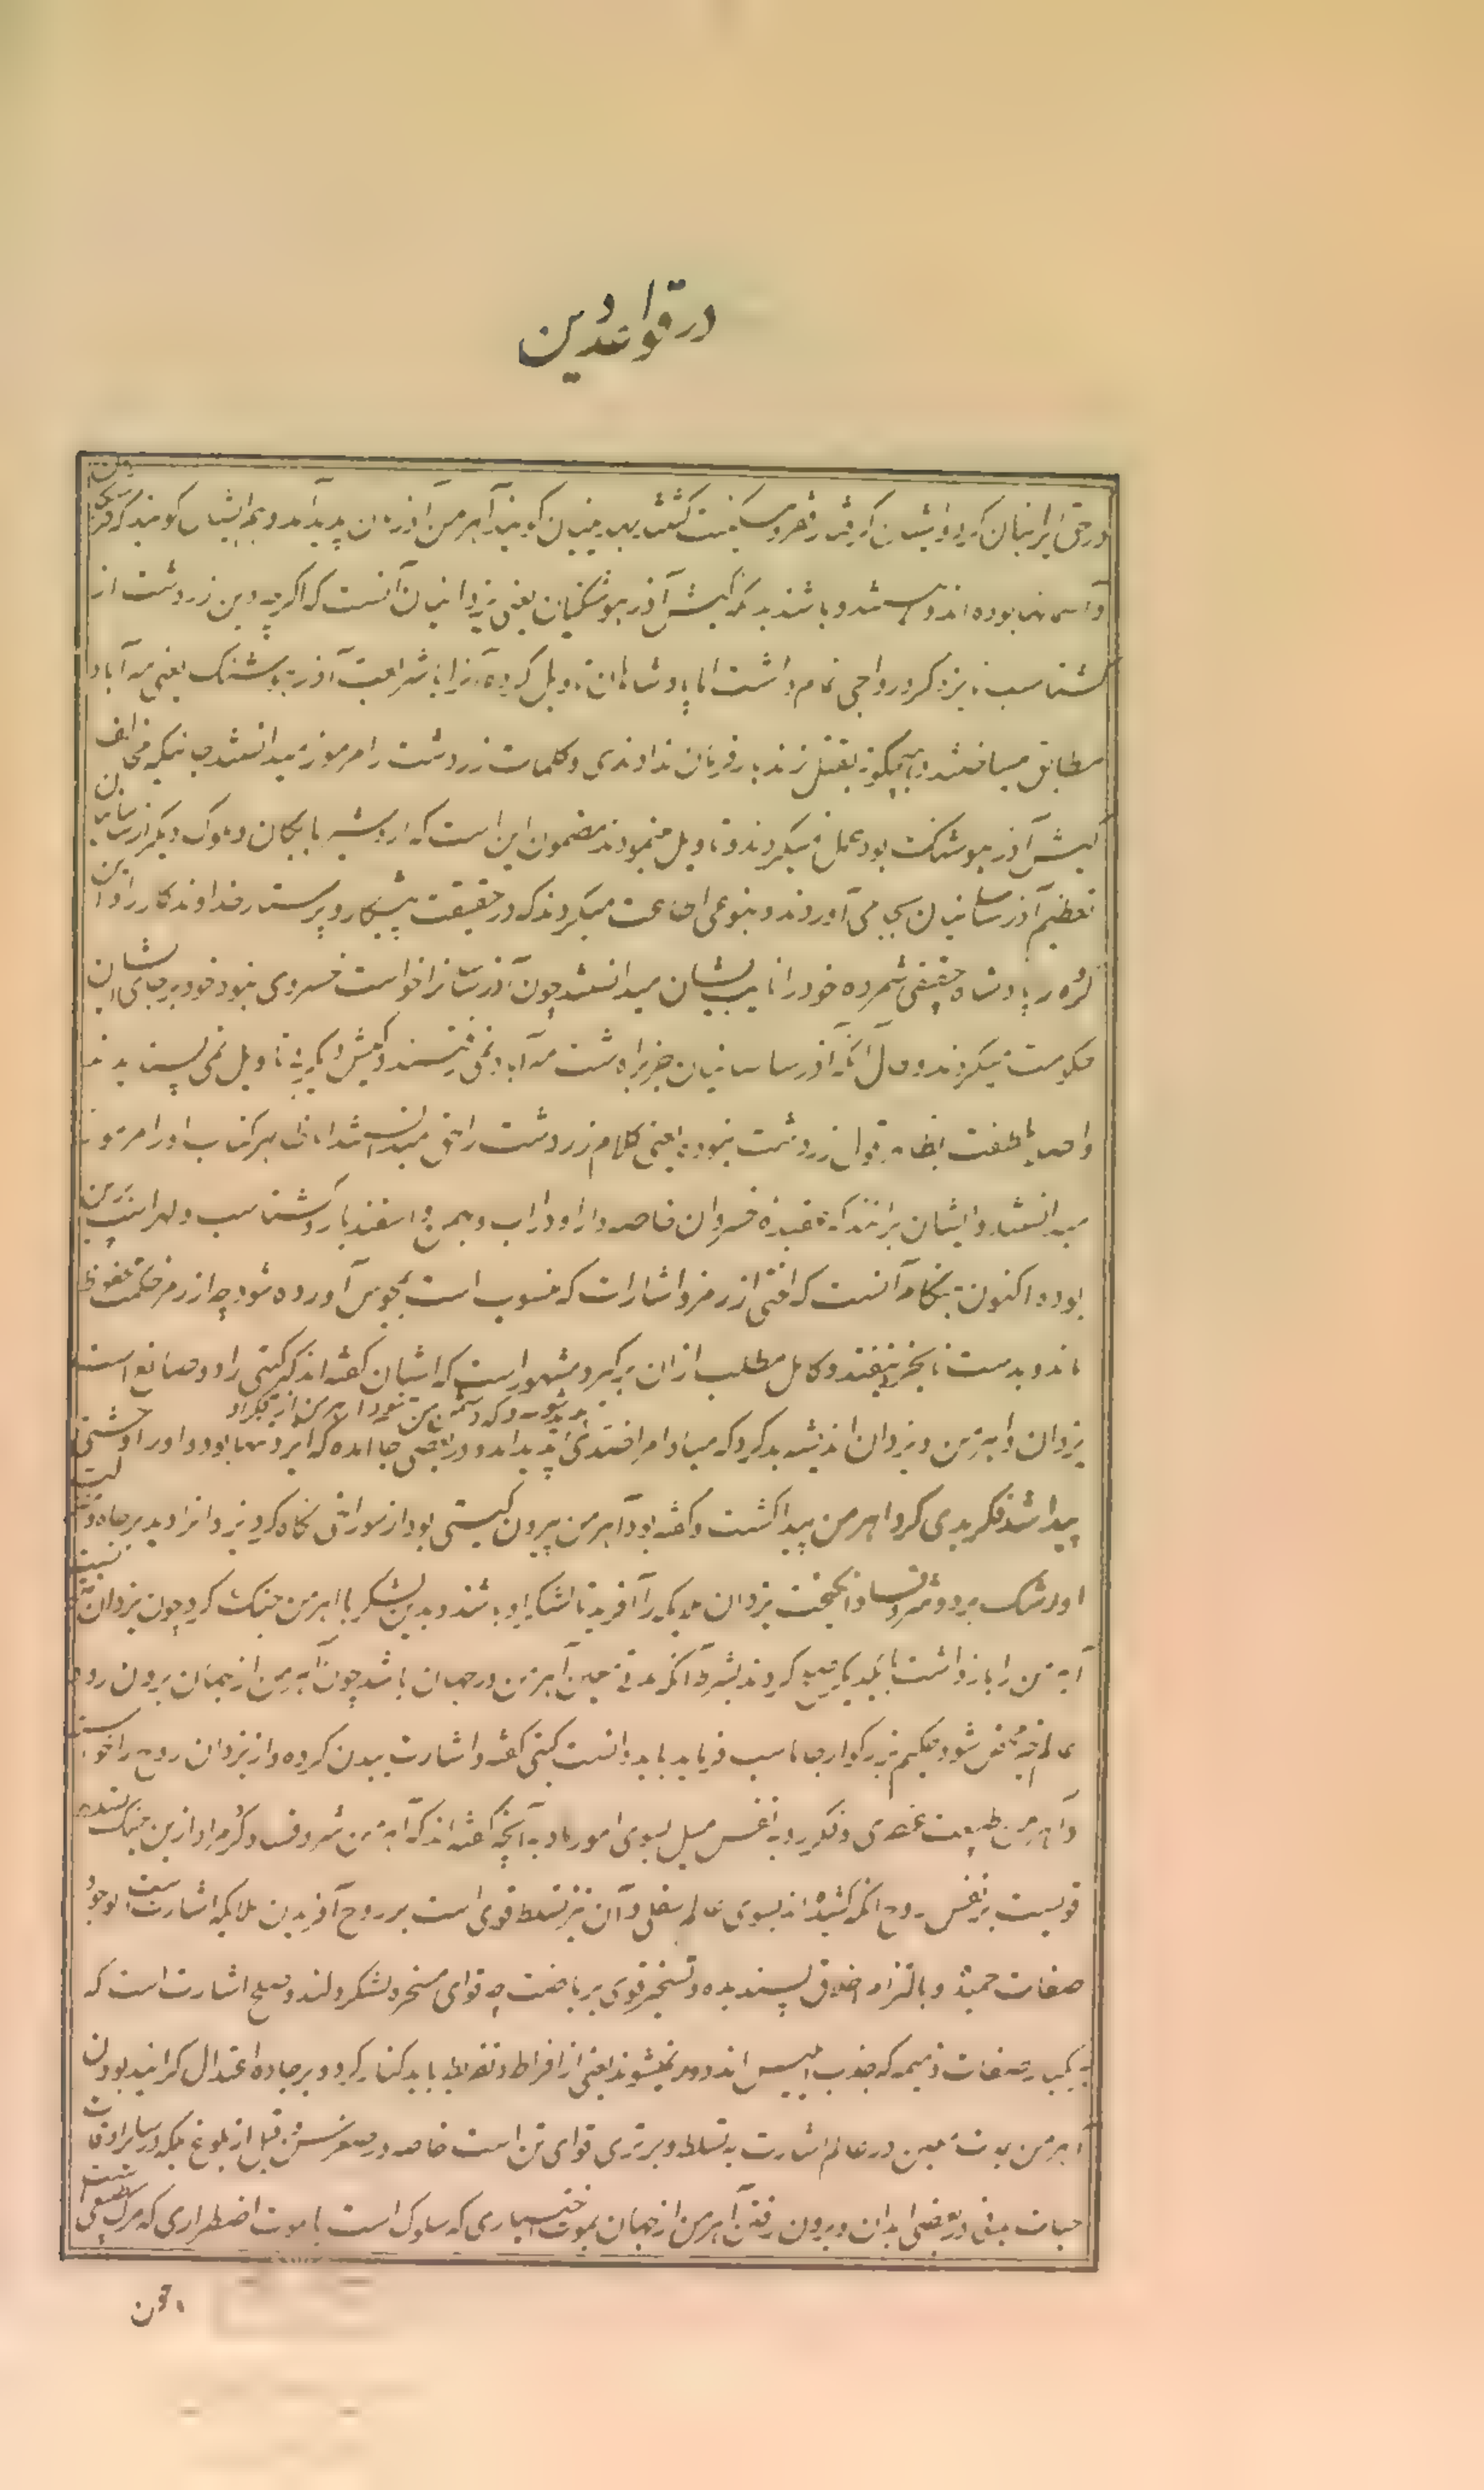 در قواعد دین
در حق ایرانیان کرد و ایشان گرفتار قهر و مسکینت کشتند بهدینیان گویند آهرمن از زمان پدید آمد و هم ایشان گویند که فرشتگان
و آسمانها بوده اند و هستند و باشند دیگر کیش آذر هوشنگیان یعنی یزدانیان آنست که اگرچه دین زردشت از
گشتاسب تا یزدگرد رواجی تمام داشت اما پادشاهان تاویل کرده آنرا با شریعت آذر هوشنگ یعنی مه آباد
مطابق میساختند و بهیچگونه بقتل زندبار فرمان ندادندی و کلمات زردشت را مرموز میدانستند چنانکه مخالف
کیش آذر هوشنگ بود عمل نمیکردند و تاویل مینمودند مضمون این است که اردشیر بابکان و ملوک دیگر از ساسانیان
تعظیم آذر ساسانیان بجا می آوردند و بنوعی اطاعت میکردند که در حقیقت پیشکار و پرستار خداوند کار را و این
گروه را پادشاه حقیقی شمرده خود را نایب ایشان میدانستند چون آذر ساسانرا خواست خسروی نبود خود بر جای ایشان
حکومت میکردند و حال آنکه آذر ساسانیان جز براه شت مه آباد نمی رفتند و کیش دیگر بی تاویل نمی پسندیدند
و اصلا التفت بظاهر قول زردشت نبوده یعنی کلام زردشت را حق میدانستند اما ظاهر کتاب او را مرموز
میدانستند و ایشان برانند که عقیده خسروان خاصه دارا و داراب و بهمن و اسفندیار و گشتاسب و لهراسب برین
بوده اکنون هنگام آنست که لختی از رمز و اشارات که منسوب است بمجوس آورده شود چه از رمز حکمت محفوظ
ماند و بدست نابخرد نیفتد و کامل مطلب ازان برگیرد مشهور است که ایشان گفته اند که گیتی را دو صانع است
یزدان و اهرمن و یزدان اندیشه بد کرد که مبادا مرا ضدی پدید شود که دشمن من بود اهرمن از فکر او پدید آمد و در بعضی جا آمده که ایزد تنها بود و او را وحشتی
پیدا شد فکر بدی کرد اهرمن پیدا گشت و گفته بود آهرمن بیرون گیتی بود از سوراخی نگاه کرد یزدانرا دید بر جاه و مرتبت
او رشک برد و شر و فساد انگیخت یزدان ملایکه را آفرید تا لشکر او باشند و بدین لشکر با اهرمن جنگ کرد چون یزدان نتوانست
آهرمن را باز داشت با یکدیگر صلح کردند بشرط آنکه مدتی معین آهرمن در جهان باشد چون آهرمن از جهان برون رود
عالم خیر محض شود حکیم بزرگوار جاماسب فرماید باید دانست گیتی گفته و اشارت ببدن کرده و از یزدان روح را خواسته
و آهرمن طبیعت عنصری و فکر ردیه نفس میل بسوی امور مادیه آنچه گفته اند که آهرمن شر و فساد کرد مراد ازین جنگ
قویست بر نفس روح آنکه کشیده اند بسوی عالم سفلی و آن نیز تسلط قوی است بر روح آفریدن ملایکه اشارت است بوجود
صفات حمیده و بالتزام اخلاق پسندیده و تسخیر قوی بریاضت چه قوای مسخره لشکر دلند و صلح اشارت است که
به یکبار صفات ذمیمه که جنود ابلیس اند دور نمیشوند یعنی از افراط و تفریط باید کنار کرد و بر جاده اعتدال گرائید بودن
آهرمن مدت معین در عالم اشارت به تسلط و برتری قوای تن است خاصه در صغر سن قبل از بلوغ بلکه در سایر اوقات
حیات مدنی در بعضی ابدان و برون رفتن آهرمن از جهان بموت اختیاری که سلوک است یا موت اضطراری که مرگ طبیعی است
چون